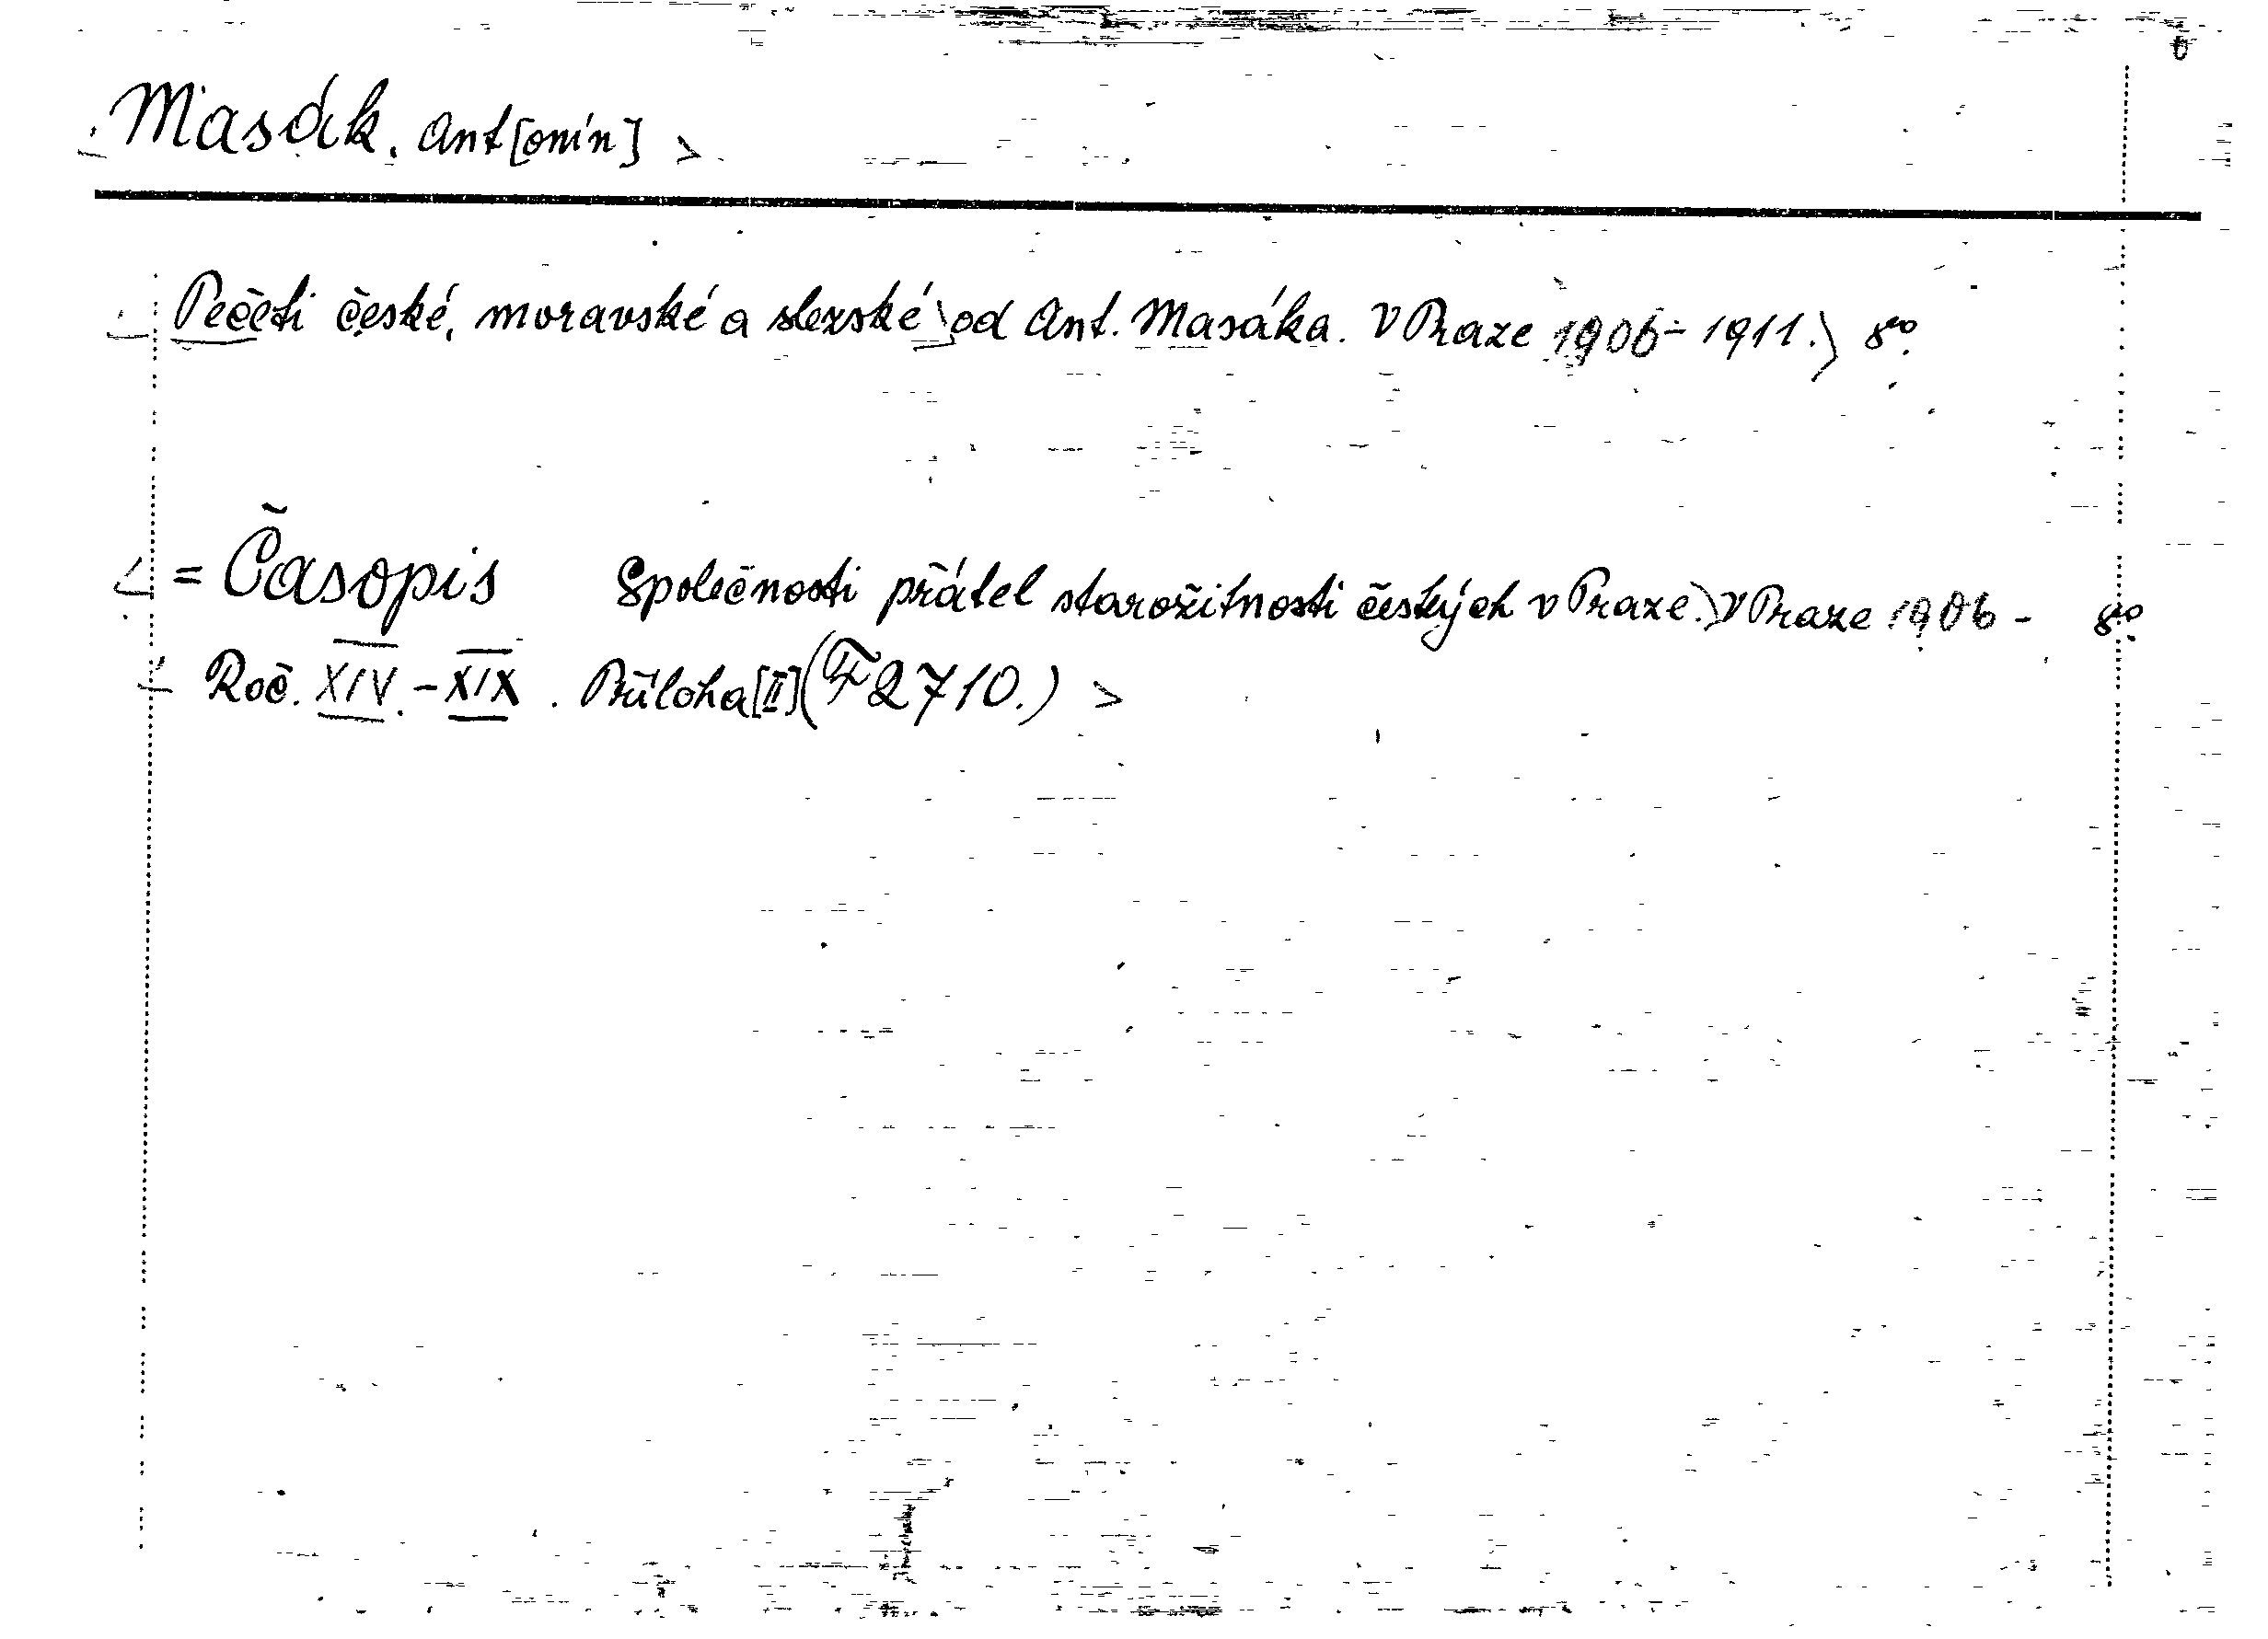 Masák, Ant[onín]
Pečeti české, moravské a slezské od Ant. Masáka. V Praze 1906-1911. 8º.
= Časopis Společnosti přátel starožitností českých v Praze. V Praze 1906 - 8º
Roč. XIV. - XIX. Příloha [II] (F 2710.)